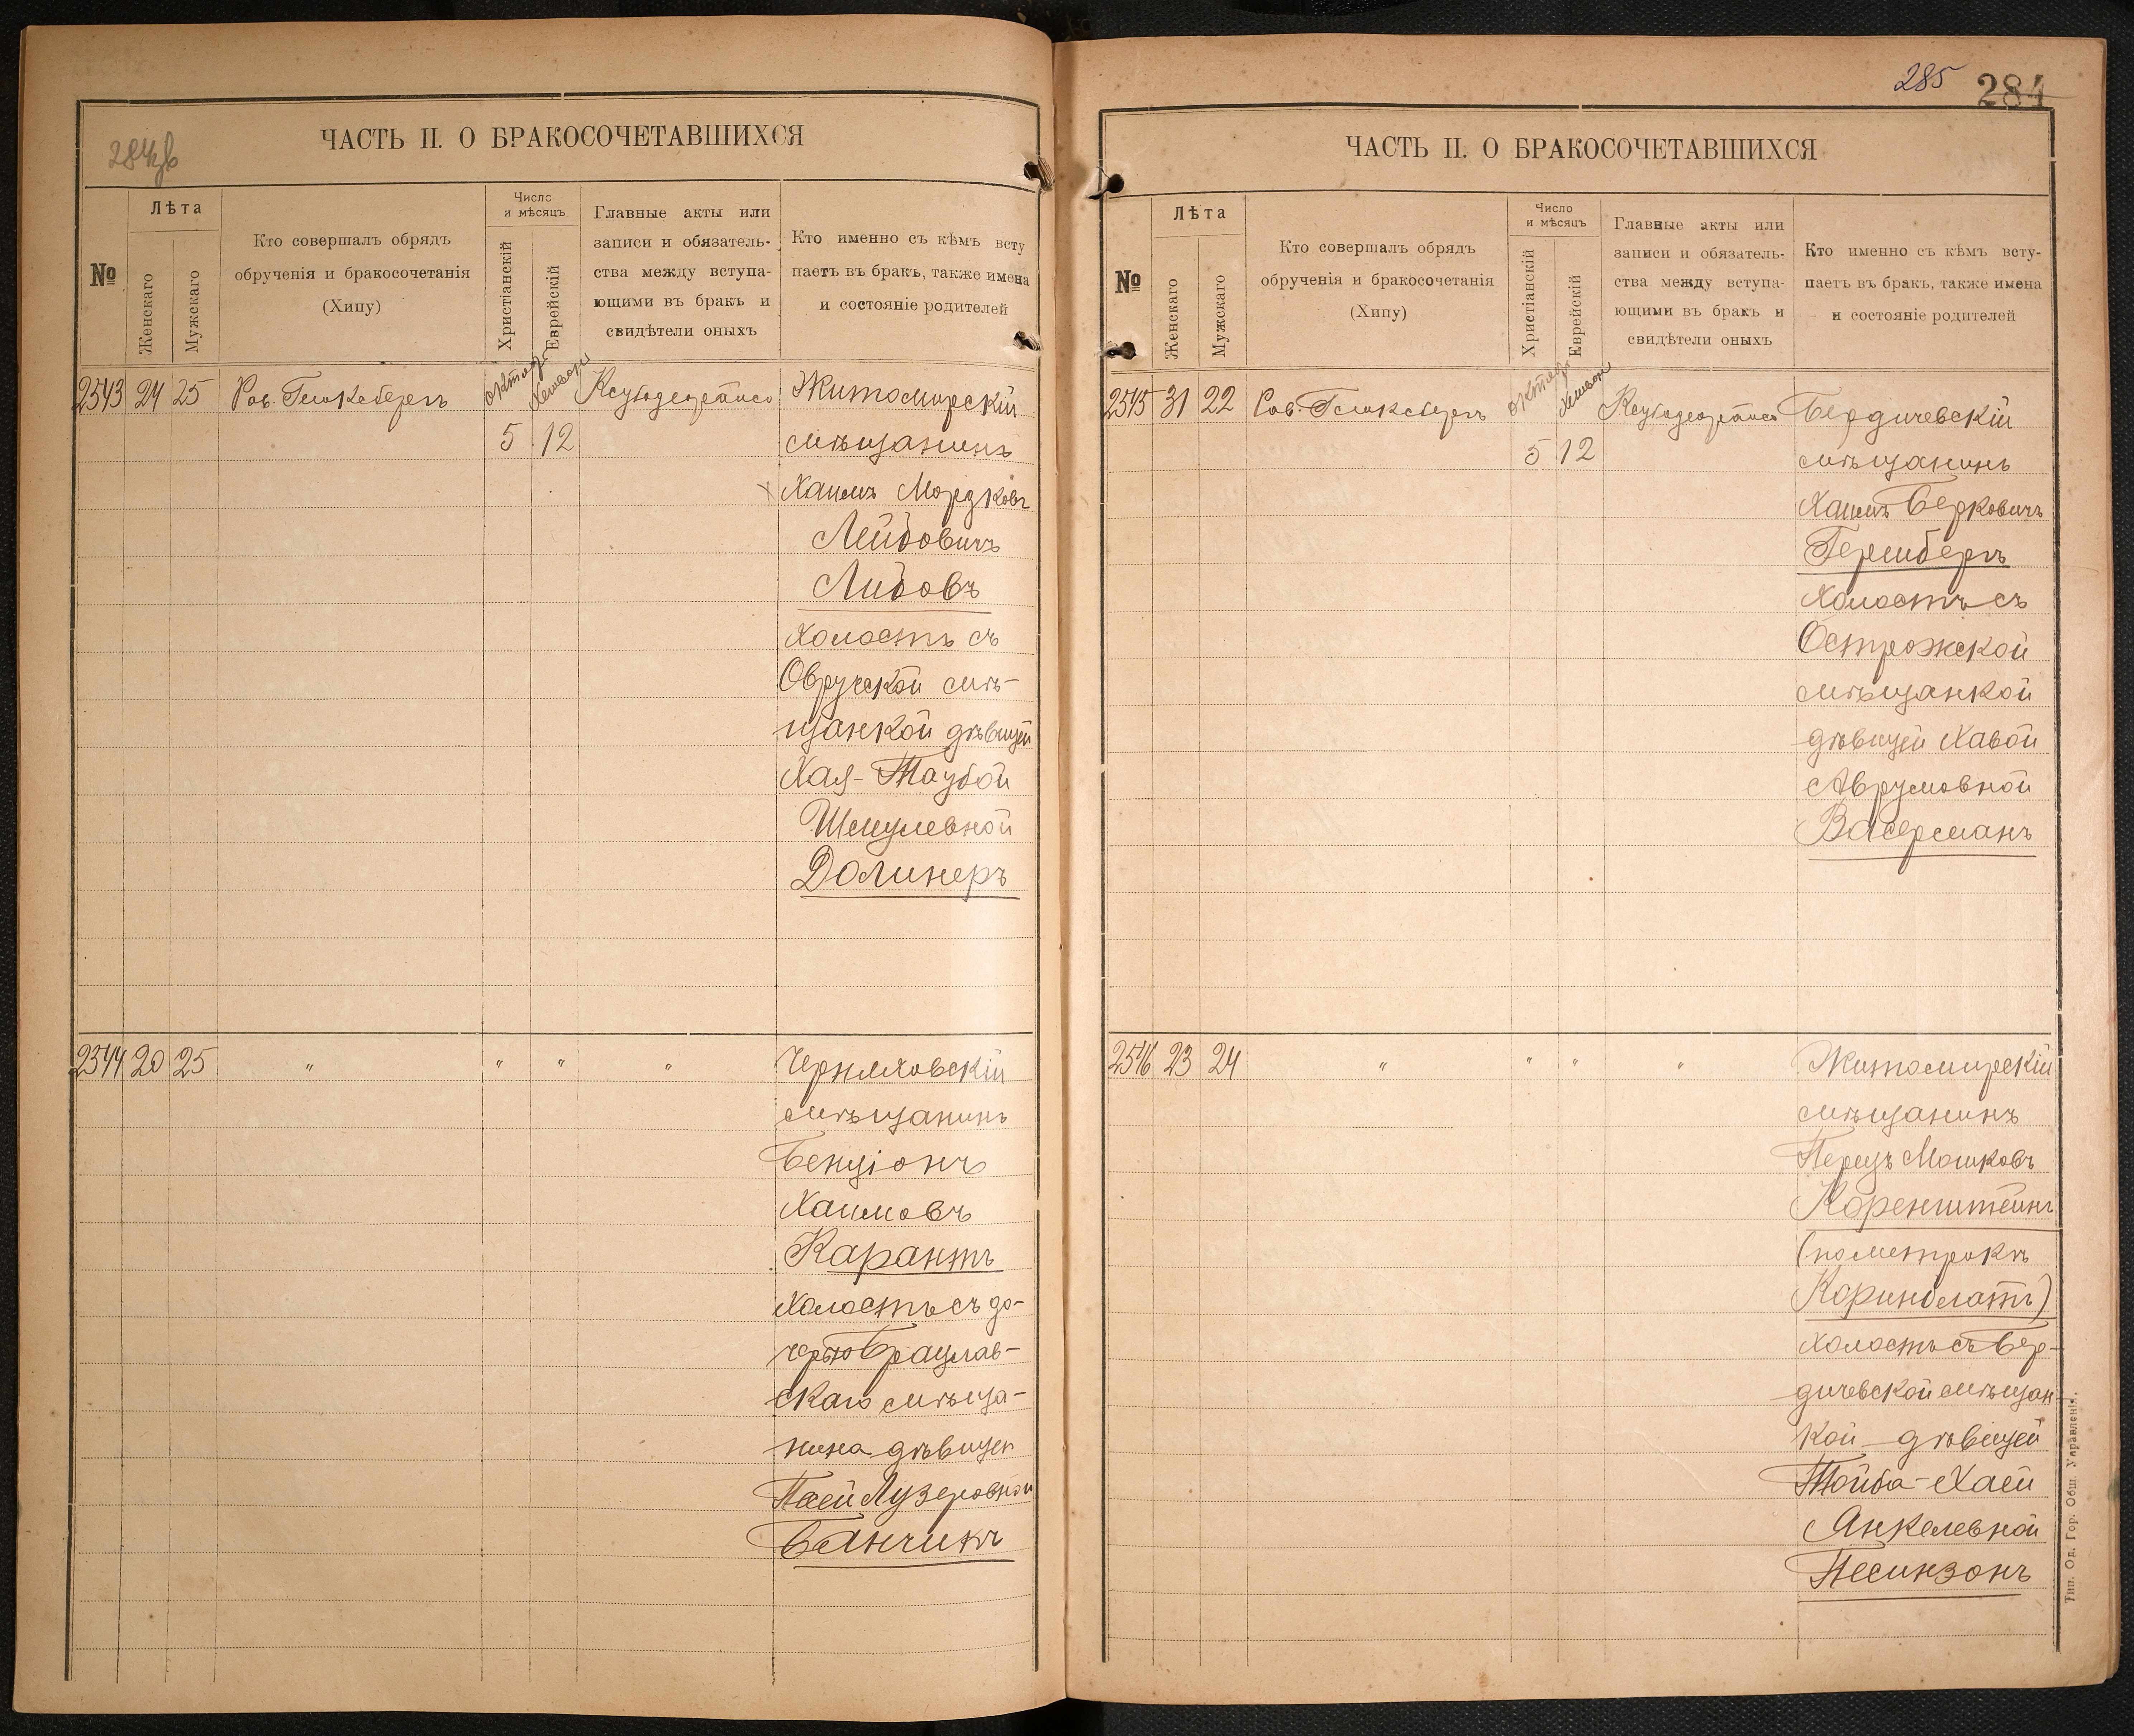 284об
ЧАСТЬ II. О БРАКОСОЧЕТАВШИХСЯ
№
Лѣта
Женскаго
Мужскаго
Кто совершалъ обрядъ
обрученія и бракосочетанія
(Хипу)
Число
и мѣсяцъ
Христіанскій
Еврейскій
Главные акты или
записи и обязатель-
ства между вступа-
ющими въ бракъ и
свидѣтели оныхъ
Кто именно съ кѣмъ всту
паетъ въ бракъ, также имена
и состояніе родителей
2543 24 25 Рав. Глюксбергъ октяб. Хешван Житомирскій
5 12 мѣщанинъ
Хаимъ Мордковъ
Лейбовичъ
Либовъ
холостъ съ
Овручской мѣ-
щанкой дѣвицей
Хая-Таубой
Шмулевной
Долинеръ
2544 20 25 " " " " Черняховскій
мѣщанинъ
Бенціонъ
Хаимовъ
Карантъ
холостъ съ до-
черью Брацлав-
скаго мѣща-
нина дѣвицей
Песей Лузеровной
Банчикъ
285 284
ЧАСТЬ II. О БРАКОСОЧЕТАВШИХСЯ
№
Лѣта
Женскаго
Мужскаго
Кто совершалъ обрядъ
обрученія и бракосочетанія
(Хипу)
Число
и мѣсяцъ
Христіанскій
Еврейскій
Главные акты или
записи и обязатель-
ства между вступа-
ющими въ бракъ и
свидѣтели оныхъ
Кто именно съ кѣмъ всту-
паетъ въ бракъ, также имена
и состояніе родителей
2545 31 22 Рав. Глюксбергъ октяб. Хешван Бердичевскій
5 12 мѣщанинъ
Хаимъ Берковичъ
Гершбергъ
холостъ съ
Острожской
мѣщанкой
дѣвицей Хавой
Аврумовной
Васерманъ
2546 23 24 " " " " Житомирскій
мѣщанинъ
Перецъ Мошковъ
Коренштейнъ
(по метрикѣ
Коринблатъ)
холостъ съ Бер-
дичевской мѣщан
кой дѣвицей
Тойба-Хаей
Янкелевной
Песинзонъ
Тип. Од. Гор. Общ. Управленія.